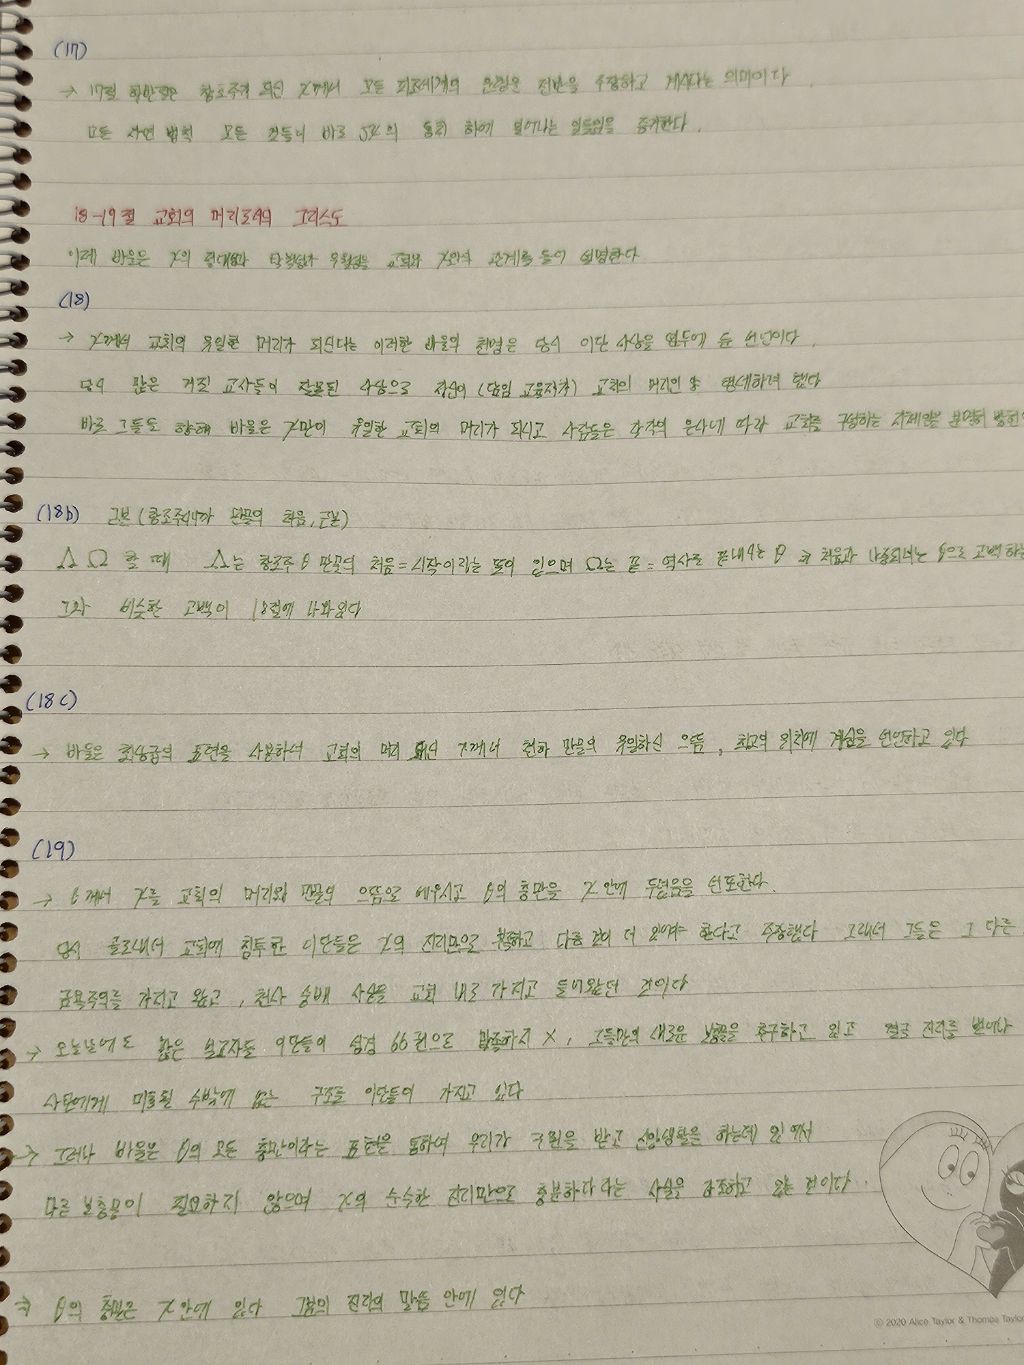 (17)
→ 17절 하반절은 창조주가 되신 X께서 모든 피조세계의 운행을 전반을 주장하고 계시다는 의미이다.
모든 자연 법칙 모든 것들이 바로 통치 하에 일어나는 일들임을 증거한다.
18-19절 교회의 머리로서의 그리스도
이제 바울은 X의 절대성과 탁월성과 우월성을 교회와 X와의 관계를 들어 설명한다
(18)
→ X께서 교회의 유일한 머리가 되신다는 이러한 바울의 천명은 당시 이단 사상을 염두에 둔 선언이다.
당시 많은 거짓 교사들이 잘못된 사상으로 자신이 교회의 머리인 양 행세하려 했다
바로 그들도 향해 바울은 X만이 유일한 교회의 머리가 되시고 사람들은 각각의 은사에 따라 교회를 구성하는 지체임을 분명히
(18b) 근본 (창조주이시자 만물의 처음, 근본)
Α Ω 할 때 Α는 창조주 θ 만물의 처음=시작이라는 뜻이 있으며 Ω는 끝=역사를 끝내시는 θ 즉 처음과 나중되시는 θ으로 고백하는
그와 비슷한 고백이 18절에 나와있다
(18c)
→ 바울은 최상급의 표현을 사용하여 교회의 머리 되신 X께서 천하 만물의 유일하신 으뜸, 최고의 위치에 계심을 선언하고 있다
(19)
→ θ께서 X를 교회의 머리와 만물의 으뜸으로 세우시고 θ의 충만을 X안에 두셨음을 선포한다.
당시 골로새서 교회에 침투한 이단들은 X의 진리만으로 부족하고 다른 것이 더 있어야 한다고 주장했다 그래서 그들은 그 다른
금욕주의를 가지고 왔고, 천사 숭배 사상을 교회 내로 가지고 들어왔던 것이다
→ 오늘날에도 많은 이단들이 성경 66권으로 만족하지 X, 그들만의 새로운 것을 추구하고 있고 결국 진리를 벗어나
사탄에게 미혹될 수밖에 없는 구조를 이단들이 가지고 있다
→ 그러나 바울은 θ의 모든 충만이라는 표현을 통하여 우리가 구원을 받고 신앙생활을 하는데 있어서
다른 보충물이 필요하지 않으며 X의 순수한 진리만으로 충분하다라는 사실을 강조하고 있는 것이다.
⇒ θ의 충만은 X안에 있다 그분의 진리의 말씀 안에 있다
© 2020 Alice Taylor & Thomas Taylor